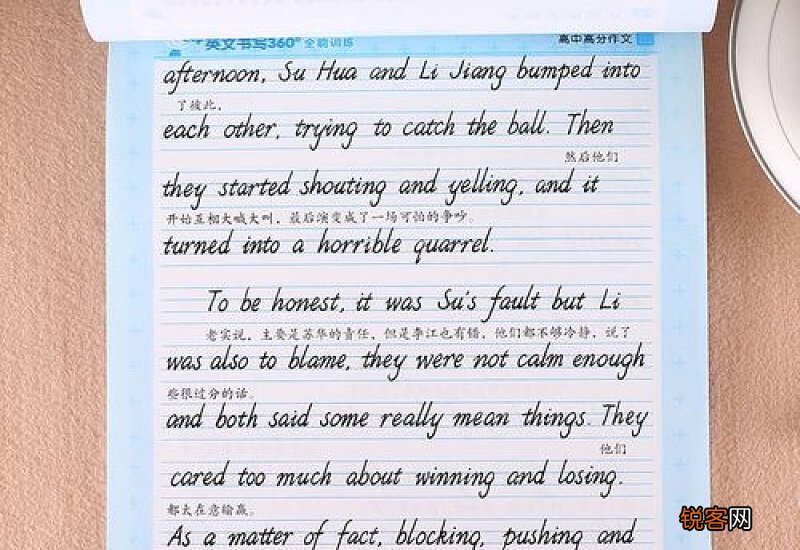 英文书写360° 全能训练 高中高分作文
afternoon, Su Hua and Li Jiang bumped into
了彼此,
each other, trying to catch the ball. Then
然后他们
they started shouting and yelling, and it
开始互相大喊大叫,最后演变成了一场可怕的争吵。
turned into a horrible quarrel.
To be honest, it was Su's fault but Li
老实说,主要是苏华的责任,但是李江也有错,他们都不够冷静,说了
was also to blame, they were not calm enough
些很过分的话。
and both said some really mean things. They
他们
cared too much about winning and losing.
都太在意输赢。
As a matter of fact, blocking, pushing and
锐客网